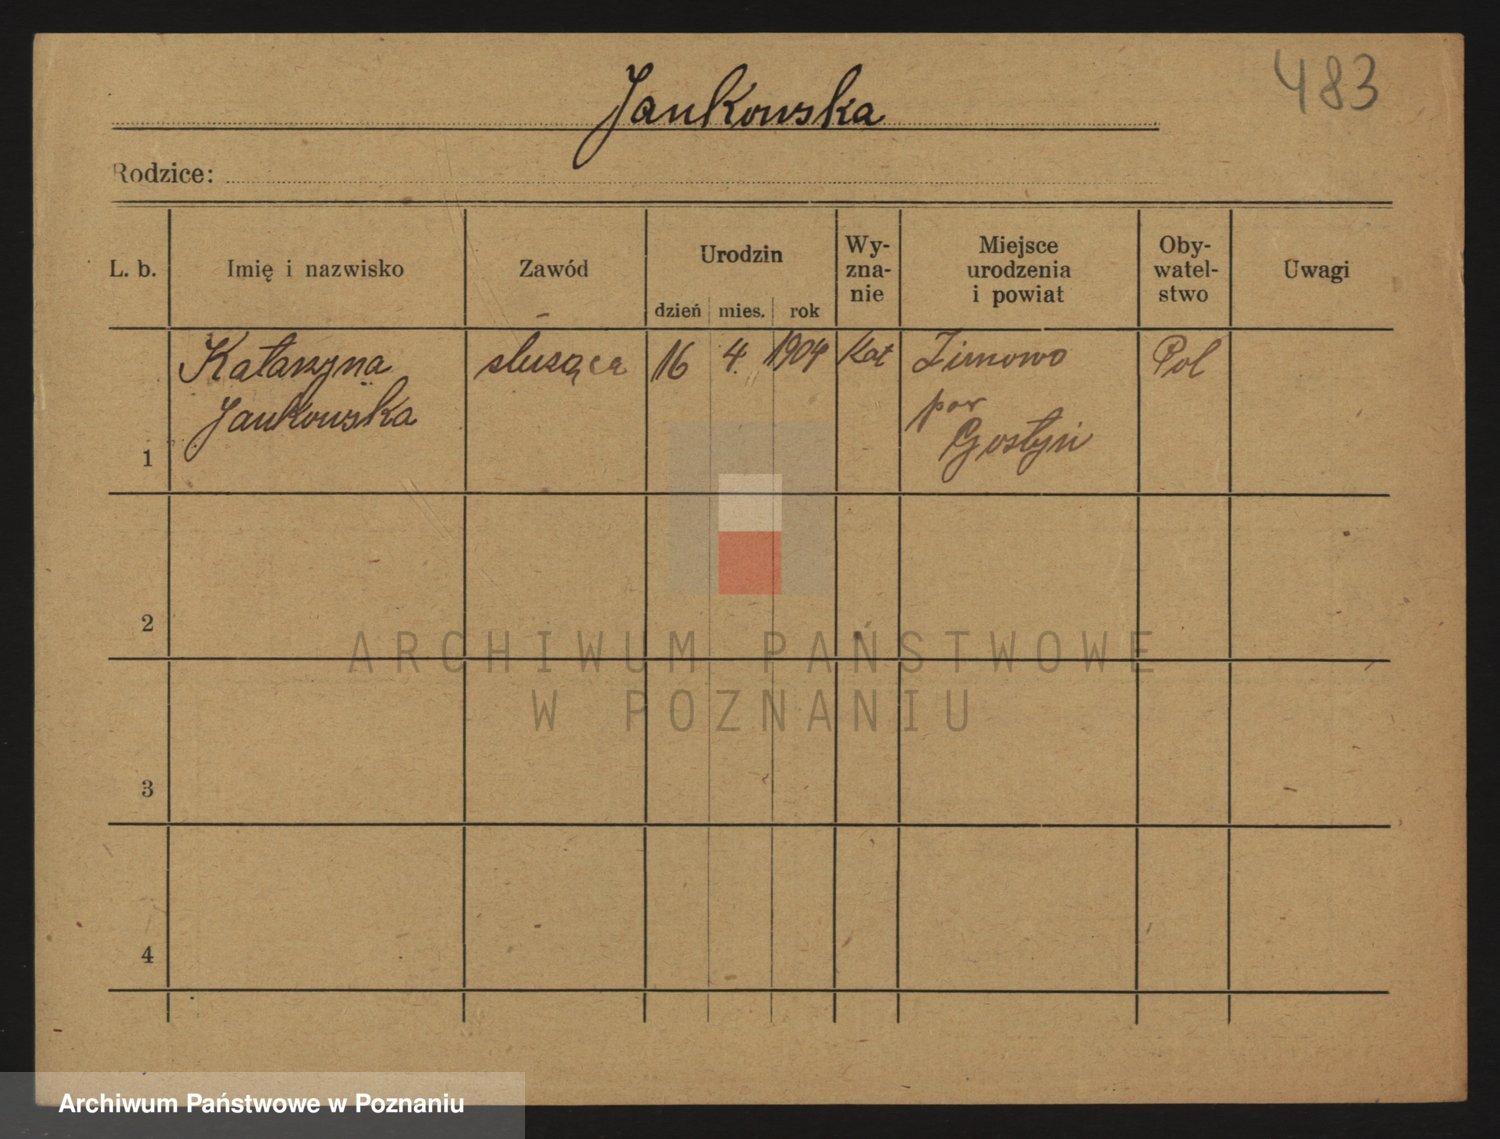 483
Jankowska
Rodzice:
L. b.
Imię i nazwisko
Zawód
Urodzin
dzień
mies.
rok
Wy-
zna-
nie
Miejsce
urodzenia
i powiat
Oby-
watel-
stwo
Uwagi
1
Katarzyna
Jankowska
służąca
16
4
1904
Kat
Zimowo
pow
Gostyń
Pol
2
3
4
ARCHIWUM PAŃSTWOWE
W POZNANIU
Archiwum Państwowe w Poznaniu